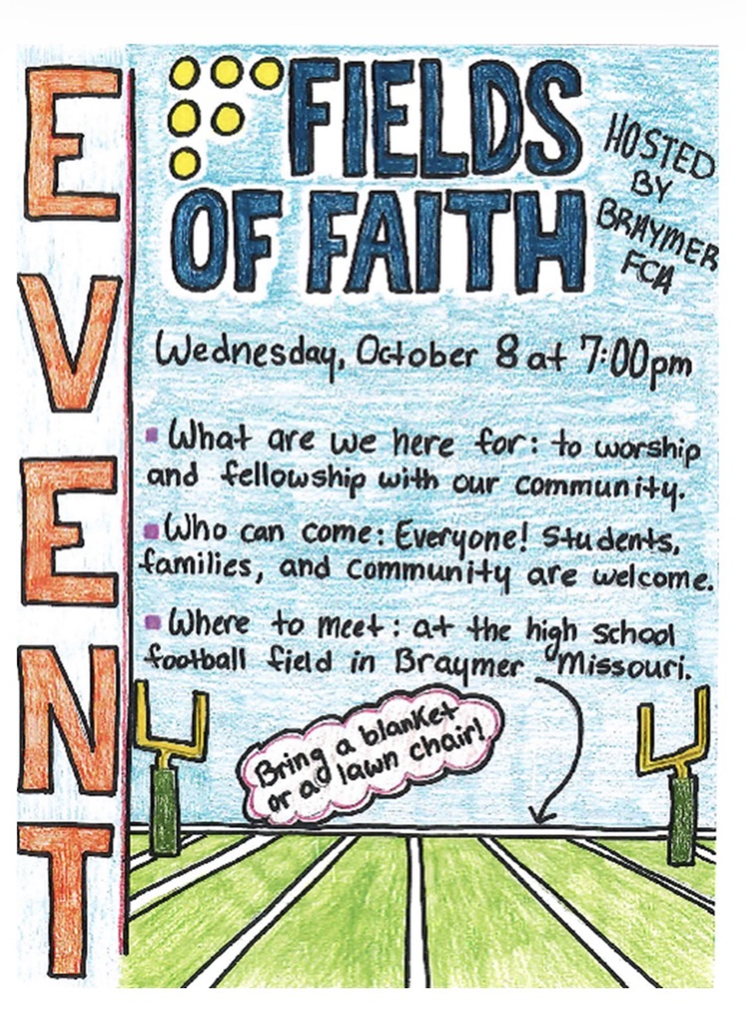 EVENT
FIELDS
OF FAITH
HOSTED
BY
BRAYMER
FCA
Wednesday, October 8 at 7:00pm
▪ What are we here for: to worship
and fellowship with our community.
▪ Who can come: Everyone! Students,
families, and community are welcome.
▪ Where to meet: at the high school
football field in Braymer Missouri.
Bring a blanket
or a lawn chair!